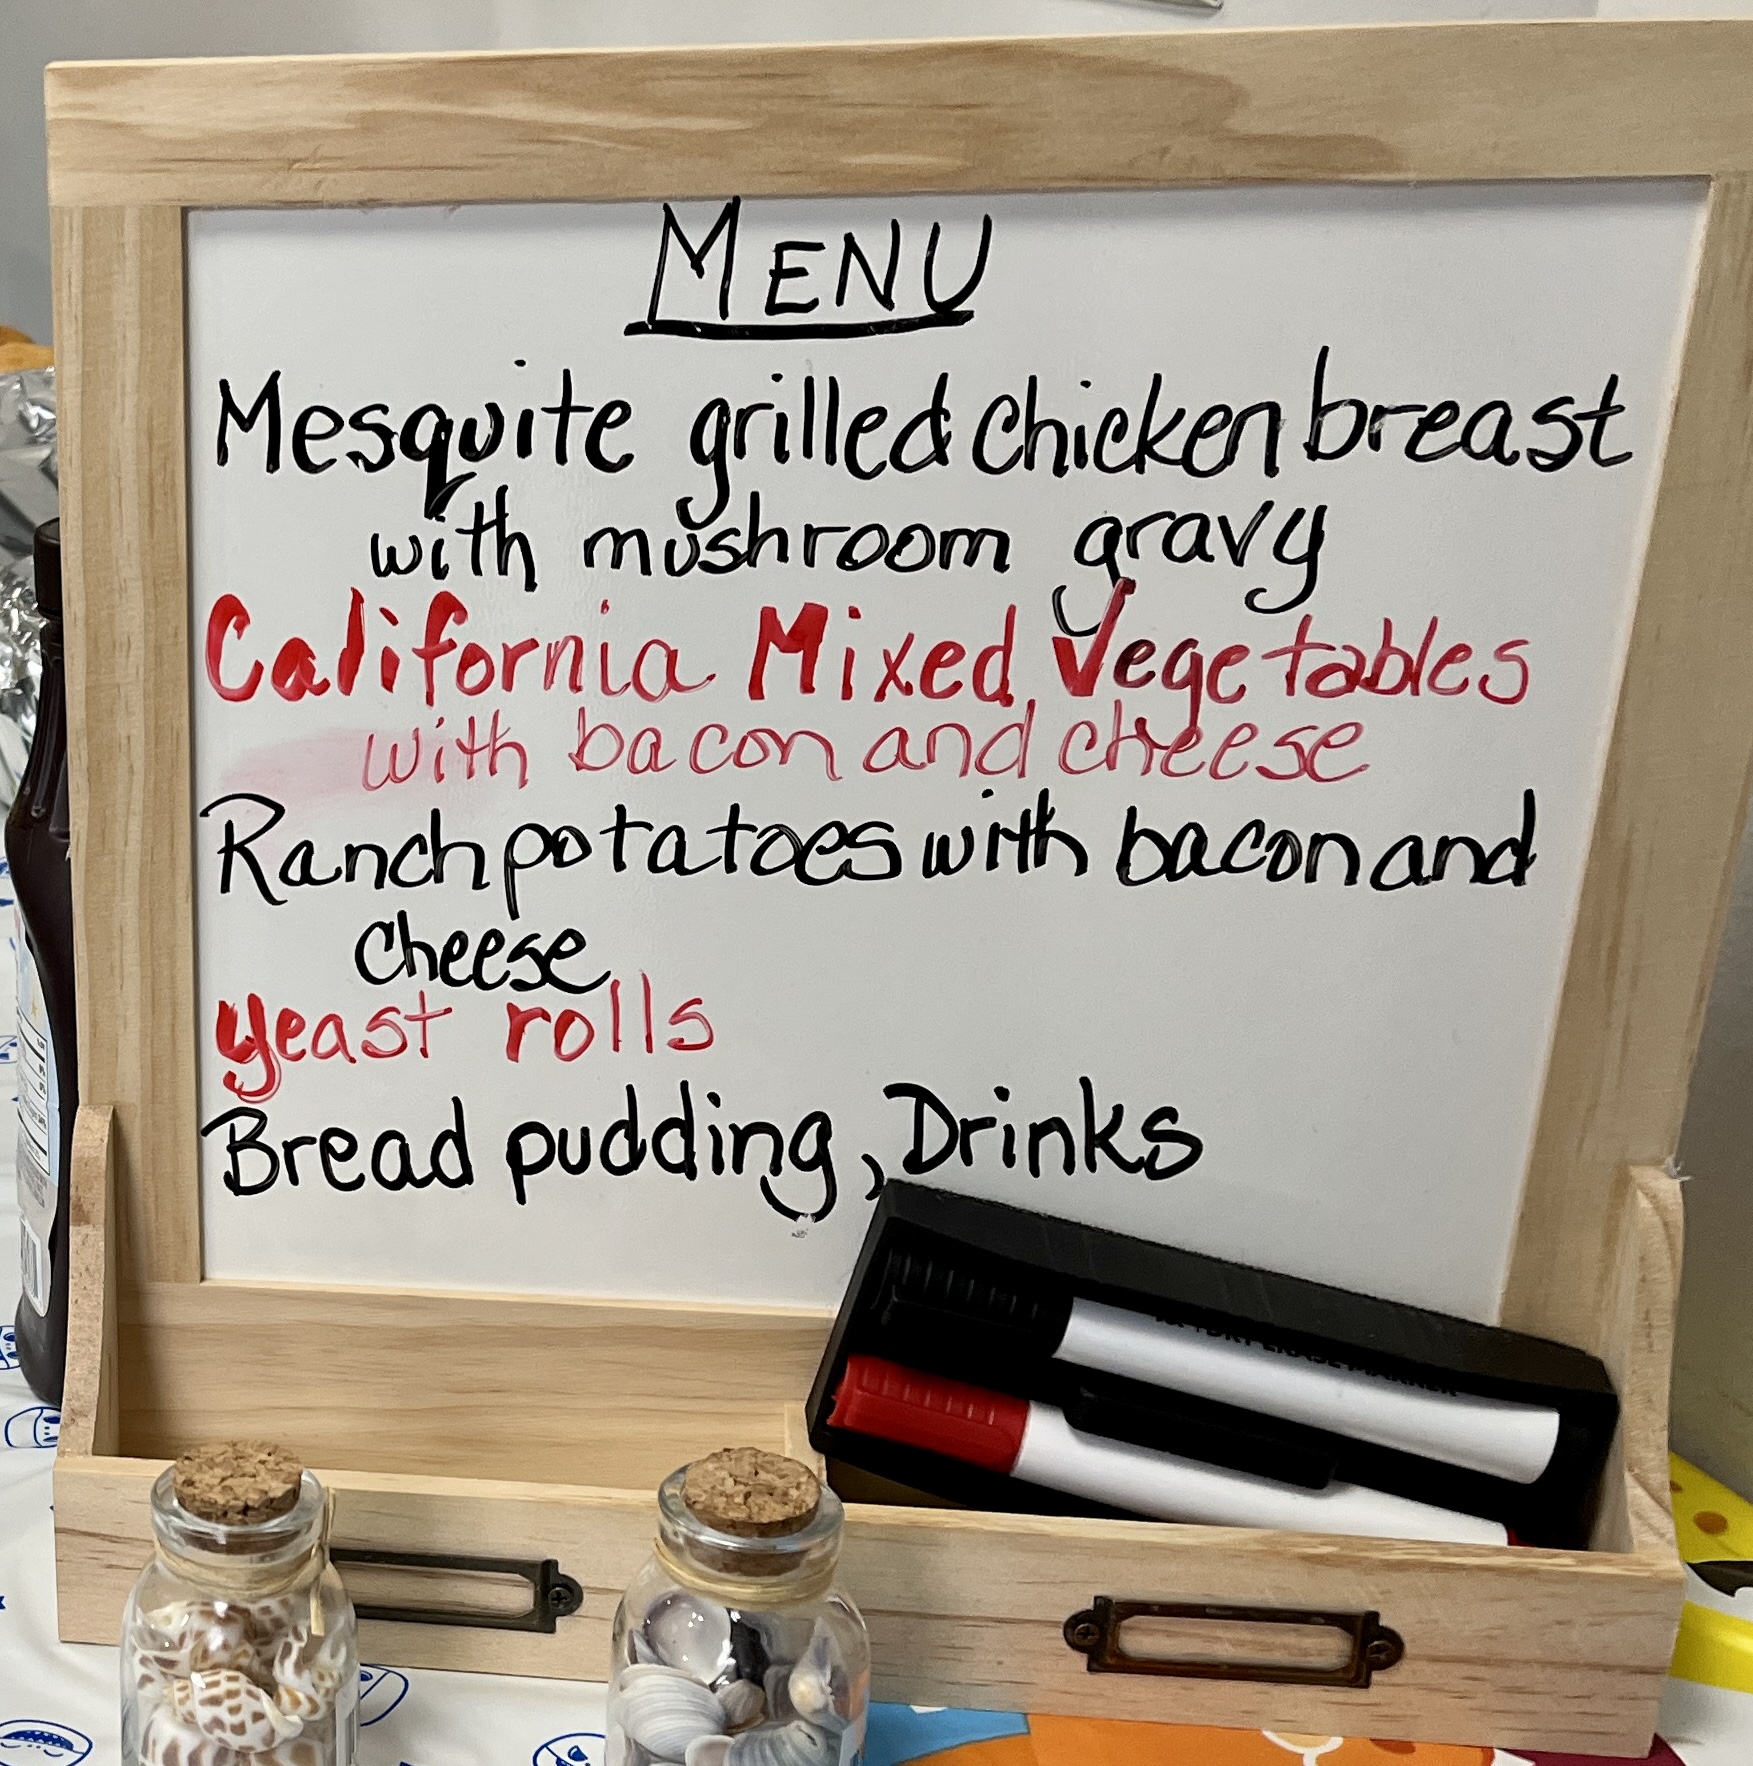 MENU
Mesquite grilled chicken breast
with mushroom gravy
California Mixed Vegetables
with bacon and cheese
Ranch potatoes with bacon and
cheese
yeast rolls
Bread pudding, Drinks
DRY ERASE MARKER